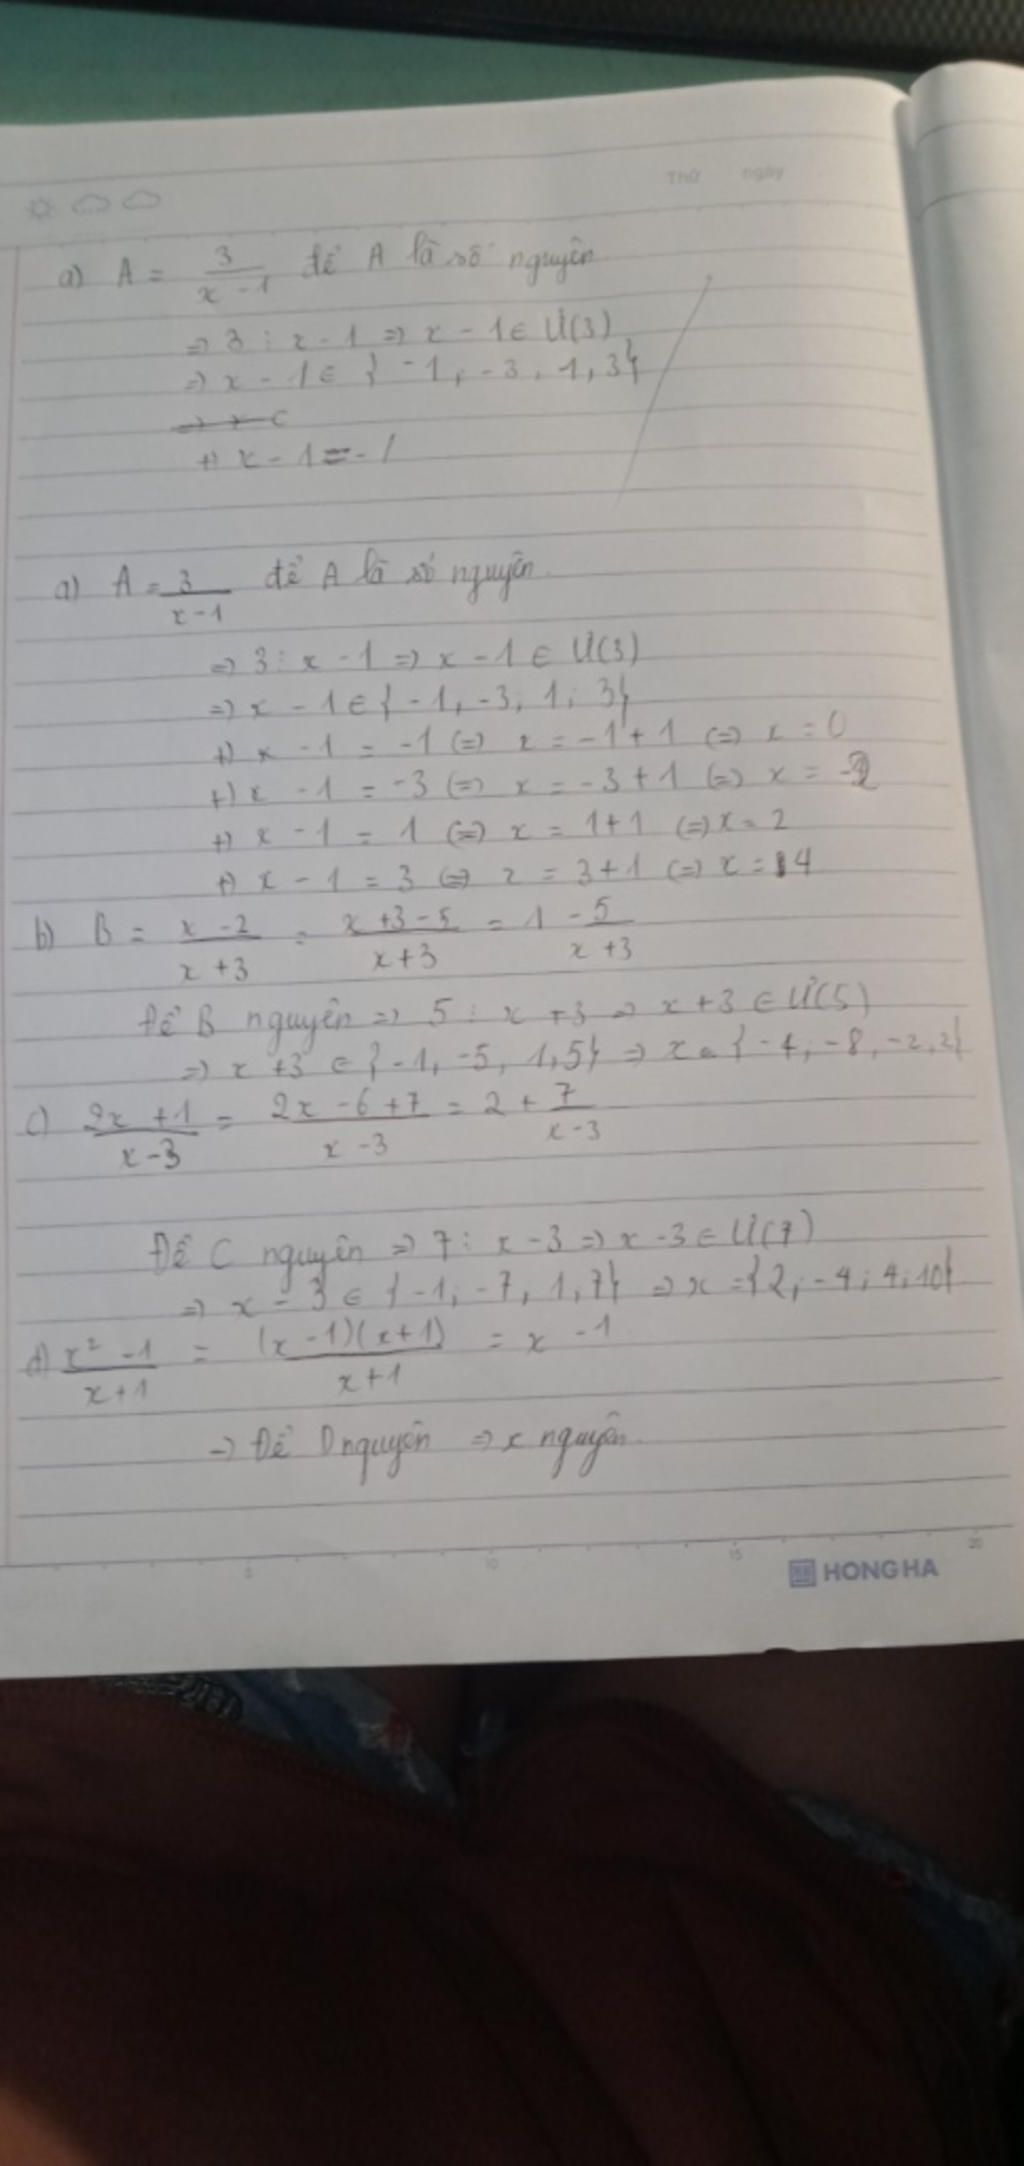 Thứ ngày
a) A = 3/(x - 1) để A là số nguyên
⇒ 3 ⋮ x - 1 ⇒ x - 1 ∈ Ư(3)
⇒ x - 1 ∈ { -1, -3, 1, 3}
⇒ x ∈
+) x - 1 = -1
a) A = 3/(x - 1) để A là số nguyên.
⇒ 3 ⋮ x - 1 ⇒ x - 1 ∈ Ư(3)
⇒ x - 1 ∈ { -1, -3, 1; 3}
+) x - 1 = -1 (=) x = -1 + 1 (=) x = 0
+) x - 1 = -3 (=) x = -3 + 1 (=) x = -2
+) x - 1 = 1 (=) x = 1+1 (=) x = 2
+) x - 1 = 3 (=) x = 3+1 (=) x = 4
b) B = (x - 2)/(x + 3) = (x + 3 - 5)/(x + 3) = 1 - 5/(x + 3)
Để B nguyên ⇒ 5 ⋮ x + 3 ⇒ x + 3 ∈ Ư(5)
⇒ x + 3 ∈ { -1, -5, 1, 5} ⇒ x = { -4, -8, -2, 2}
c) (2x + 1)/(x - 3) = (2x - 6 + 7)/(x - 3) = 2 + 7/(x - 3)
Để C nguyên ⇒ 7 ⋮ x - 3 ⇒ x - 3 ∈ Ư(7)
⇒ x - 3 ∈ { -1, -7, 1, 7} ⇒ x = {2, -4; 4; 10}
d) (x² - 1)/(x + 1) = (x - 1)(x + 1)/(x + 1) = x - 1
→ Để D nguyên ⇒ x nguyên.
5 10 15 20
HONG HA